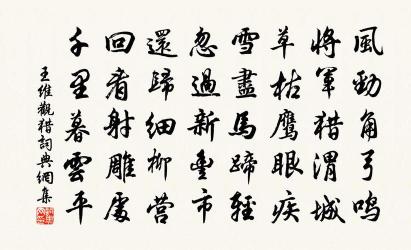 風勁角弓鳴
將軍猎渭城
草枯鹰眼疾
雪盡馬蹄輕
忽過新豊市
還歸細柳营
回看射雕處
千里暮雲平
王維觀猎詞典網集